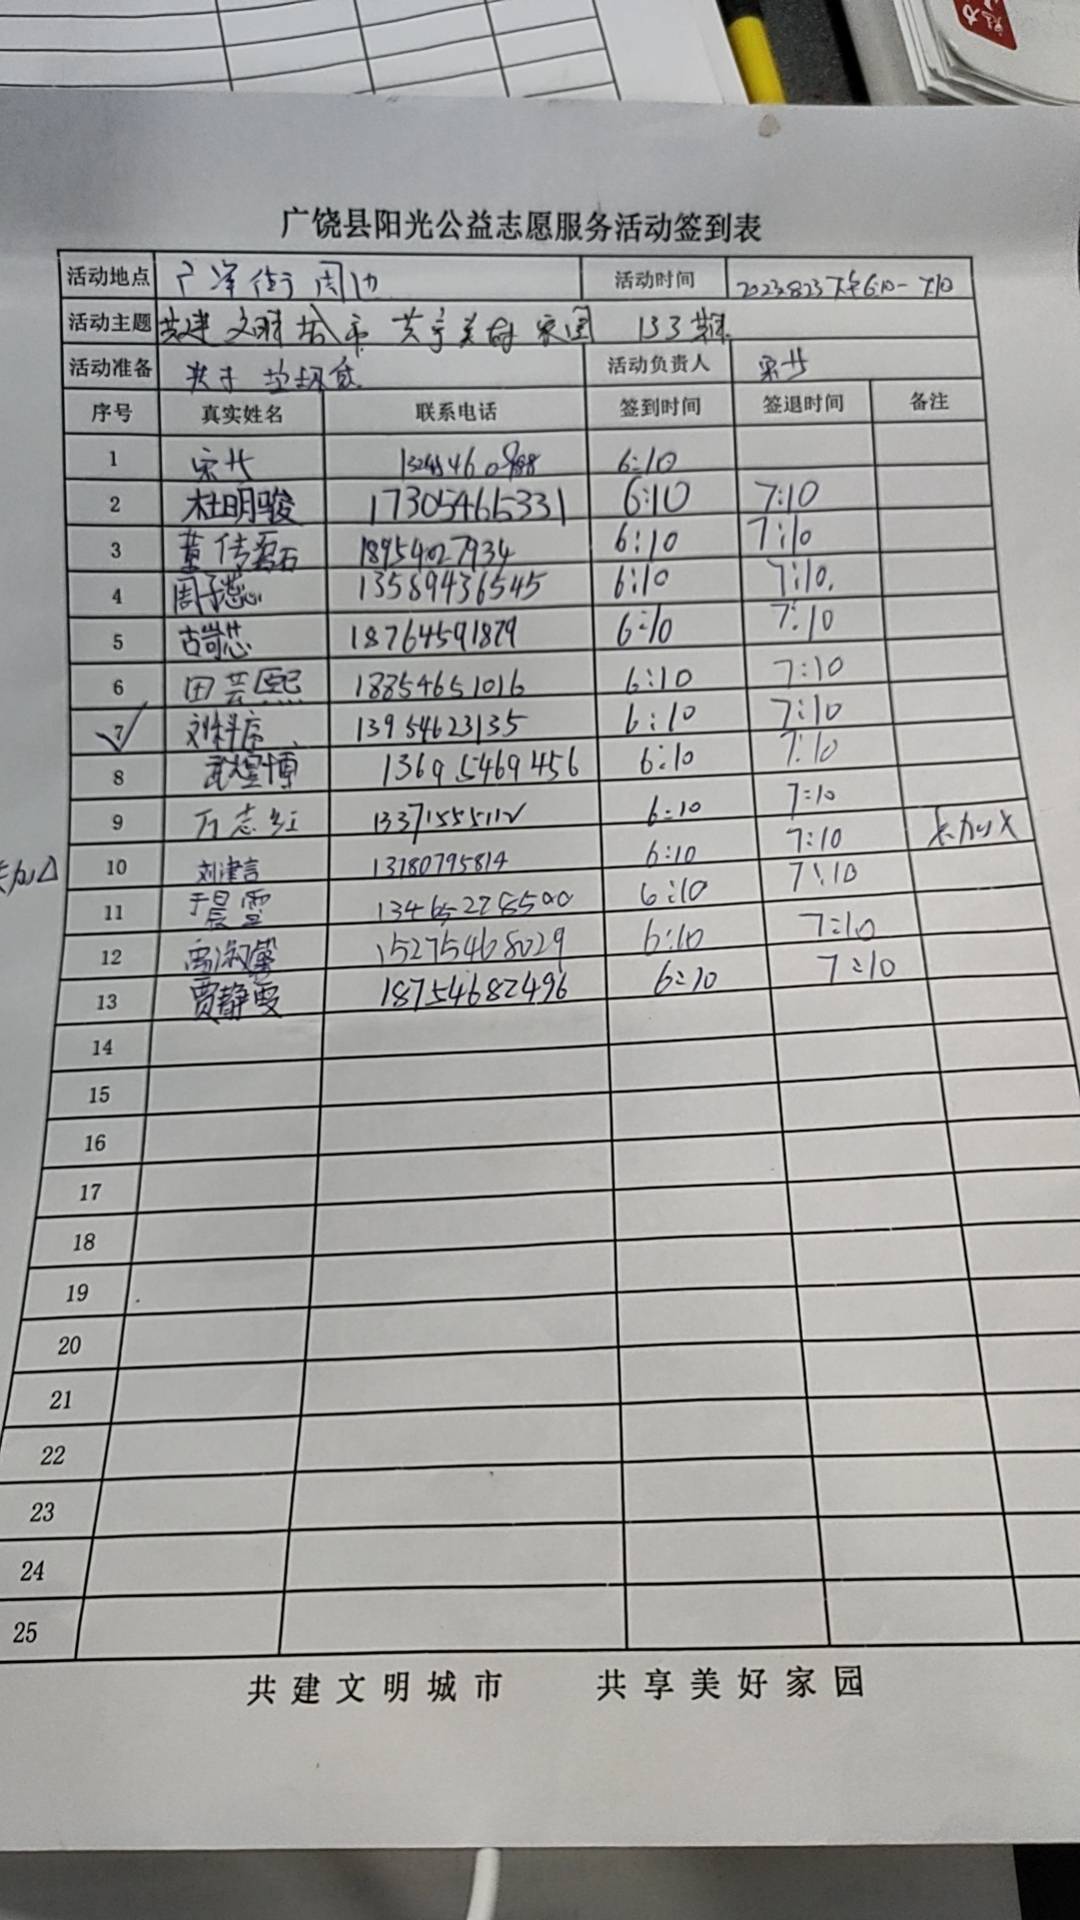 魅力
广饶县阳光公益志愿服务活动签到表
活动地点 广泽街周边 活动时间 2023.8.23 下午6:10-7:10
活动主题 共建文明城市 共享美好家园 133期
活动准备 夹子 垃圾袋 活动负责人
序号 真实姓名 联系电话 签到时间 签退时间 备注
1 6:10
2 杜明骏 17305465331 6:10 7:10
3 董传磊 18954027934 6:10 7:10
4 周子蕊 13589436545 6:10 7:10.
5 古尚芯 18764591879 6:10 7:10
6 田芸熙 18854651016 6:10 7:10
7 13954623135 6:10 7:10
8 武煌博 13695469456 6:10 7:10
9 万志红 13371555112 6:10 7:10
10 刘津言 13780795814 6:10 7:10 未加入
11 于晨雪 13465228500 6:10 7:10
12 15275468029 6:10 7:10
13 贾静雯 18754682496 6:10 7:10
14
15
16
17
18
19
20
21
22
23
24
25
共建文明城市 共享美好家园